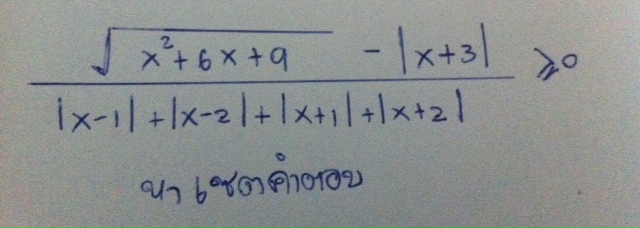 √(x²+6x+9) - |x+3|
——————————————— ≥0
|x-1|+|x-2|+|x+1|+|x+2|
หาเซตคำตอบ